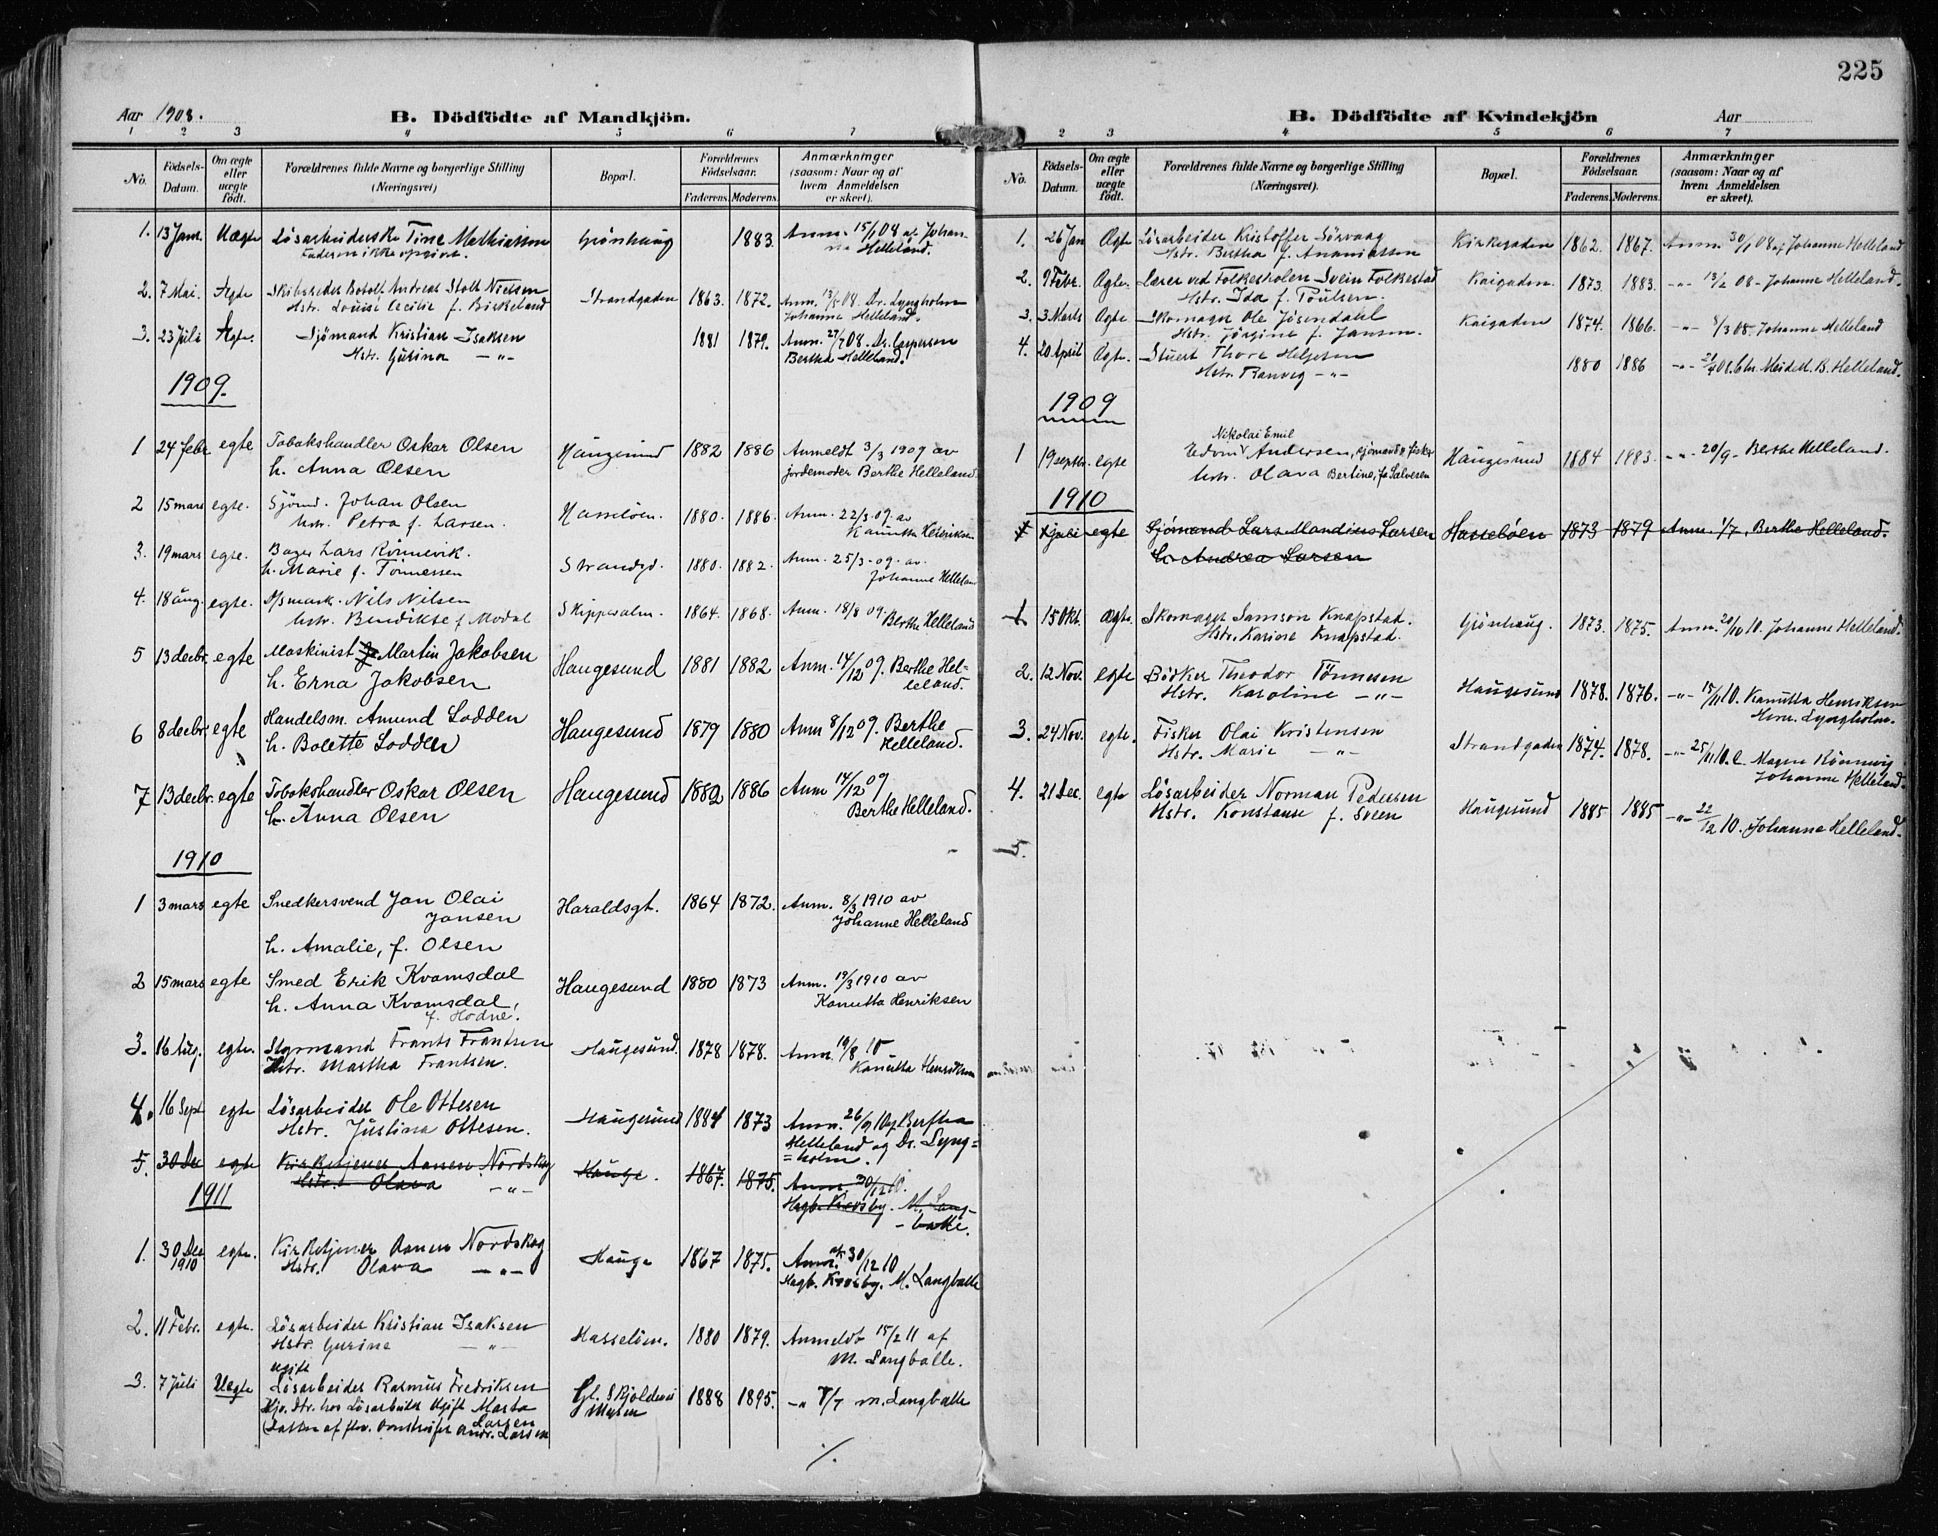 225
Aar 1908. B. Dödfödte af Mandkjön.
1 2 3 4 5 6 7
No. Födsels-Datum. Om ægte eller uægte födt. Forældrenes fulde Navne og borgerlige Stilling (Næringsvei) Bopæl. Forældrenes Födselsaar. Faderens. Moderens. Anmærkninger (saasom: Naar og af hvem Anmeldelsen er skeet).
1. 13 Jan. Uægte Lösarbeiderske Tine Mathiassen Grönhaug 1883. Anm. 15/1 08 af Johan-
Faderen ikke opgivet. na Helleland.
2. 7 Mai. Ægte Skibsreder Botolf Andreas Stolt Nielsen Strandgaden 1863. 1872. Anm. 13/5 08. Dr. Lyngholm
Hstr. Louise Cecilie f. Birkeland Johanne Helleland.
3. 23 Juli Ægte. Sjömand Kristian Isaksen 1881 1879. Anm. 27/7 08. Dr. Caspersen
Hstr. Gurina -"- Bertha Helleland.
1909.
1 24 febr egte Tobakshandler Oskar Olsen Haugesund 1882 1886 Anmeldt 3/3 1909 av
h. Anna Olsen jordemoder Berthe Helleland
2 15 mars egte. Sjömd. Johan Olsen Hasseløen. 1880. 1886. Anm. 22/3.09. av
hstr. Petra f. Larsen. Kanutta Henriksen
3. 19 mars egte. Bager Lars Rönnevik. Strandgd. 1880. 1882. Anm. 25/3-09. av
h. Marie f. Tönnessen Johanne Helleland
4. 18 aug. egte. Nils Nilsen 1864. 1868. Anm. 18/8 09.
hstr. Bendikse f. Modal Berthe Helleland
5 13 decbr. egte Maskinist Martin Jakobsen Haugesund 1881 1882 Anm. 14/12 09. Berthe Hel-
h. Erna Jakobsen leland.
6 8 decbr. egte Handelsm. Amund Lodden Haugesund 1879 1880 Anm 8/12 09. Berthe
h. Bolette Lodden Helleland.
7 13 decbr. egte Tobakshandler Oskar Olsen Haugesund 1882 1886 Anm 14/12 09
h. Anna Olsen Berthe Helleland.
1910
1 3 mars egte Snedkersvend Jan Olai Haraldsgt. 1864 1872. Anm. 8/3 1910 av
Jansen Johanne Helleland
h. Amalie, f. Olsen
2 15 mars egte Smed Erik Kvamsdal Haugesund 1880 1873 Anm. 19/3 1910 av
h. Anna Kvamsdal, Kanutta Henriksen
f. Hodne.
3. 16 Aug. egte. Styrmand Frants Frantsen Haugesund. 1878 1878. Anm. 19/8 10
Hstr. Martha Frantsen. Kanutta Henriksen
4. 16 Sept egte Lösarbeider Ole Ottesen Haugesund 1884 1873 Anm. 26/9 10 af Bertha
Hstr. Justina Ottesen. Helleland og Dr. Lyng=
=holm.
5. 30 Dec egte Kirketjener Aanen Nordskog Hauge. 1867. 1875. Anm. 30/12 10.
Hstr. Olava -"- Hagb. Krosby. M. Lang-
-balle.
1911
1. 30 Dec egte. Kirketjener Aanen Nordskog Hauge 1867 1875. Anm. 30/12 10
1910 Hstr. Olava -"- Hagb. Krosby. M. Langballe
2. 11 Febr. egte. Lösarbeider Kristian Isaksen Hasselöen. 1880 1879. Anmeldt 15/2 11 af
Hstr. Gurine -"- M. Langballe.
ugift
3. 7 Juli Uægte Lösarbeider Rasmus Fredriksen Gl. Skjoldevei 1888 1895. -"- 8/7 M. Langballe
ugift Marta Larsen
B. Dödfödte af Kvindekjön Aar
2 3 4 5 6 7
No. Födsels-Datum. Om ægte eller uægte födt. Forældrenes fulde Navne og borgerlige Stilling (Næringsvei). Bopæl. Forældrenes Födselsaar. Faderens. Moderens. Anmærkninger (saasom: Naar og af hvem Anmeldelsen er skeet).
1. 26 Jan Ægte Lösarbeider Kristoffer Sörvaag Kirkegaden 1862. 1867. Anm. 30/1 08 af Johanne Helleland
Hstr. Bertha f. Ananiassen
2. 9 Febr. Ægte. Lærer ved Folkeskolen Svein Folkestad Kaigaden. 1873. 1883. -"- 13/2 08 - Johanne Helleland.
Hstr. Ida f. Poulsen.
3. 3 Marts Ægte Skomager Ole Jösendahl Kaigaden 1874. 1866. -"- 8/3 08. Johanne Helleland
Hstr. Jörgine f. Jansen.
4. 20 April Ægte. Stuert Thore Helgesen 1880 1886 -"- B. Helleland.
Hstr. Ranveg -"-
1909
Nikolai Emil
1 19 septbr. egte Edvin Andersen, sjömand & fisker Haugesund 1884 1883. -"- 20/9 - Berthe Helleland.
hstr. Olava Bertine, f. Salvesen
1910
1 1 juli egte Sjömand Lars Mandius Larsen Hasselöen 1873 1879 Anm. 1/7. Berthe Helleland.
h. Andrea Larsen
1 15 Okt. Ægte. Skomager Samson Knapstad. Grönhaug. 1873. 1875. Anm. 20/10 10. Johanne Helleland.
Hstr. Karine Knapstad.
2. 12 Nov. egte Bödker Theodor Tönnesen Haugesund 1878. 1876. -"- 15/11 10. Kanutta Henriksen
Hstr. Karoline -"- Herm. Lyngholm.
3. 24 Nov. egte. Fisker Olai Kristensen Strandgaden 1874. 1878. -"- 25/11 10. C. Magne Rönnevig
Hstr. Marie -"- Johanne Helleland.
4. 21 Dec. egte Lösarbeider Norman Pedersen Haugesund 1885 1885 -"- 22/12 10. Johanne Helleland.
Hstr. Konstanse f. Sveen
5.